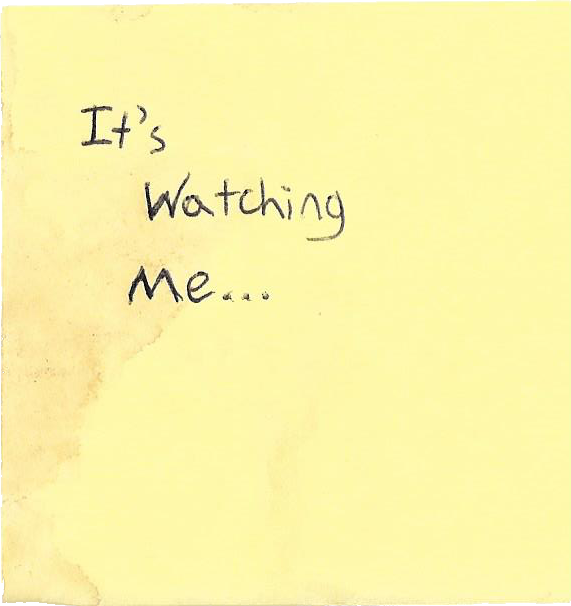 It's
Watching
Me...